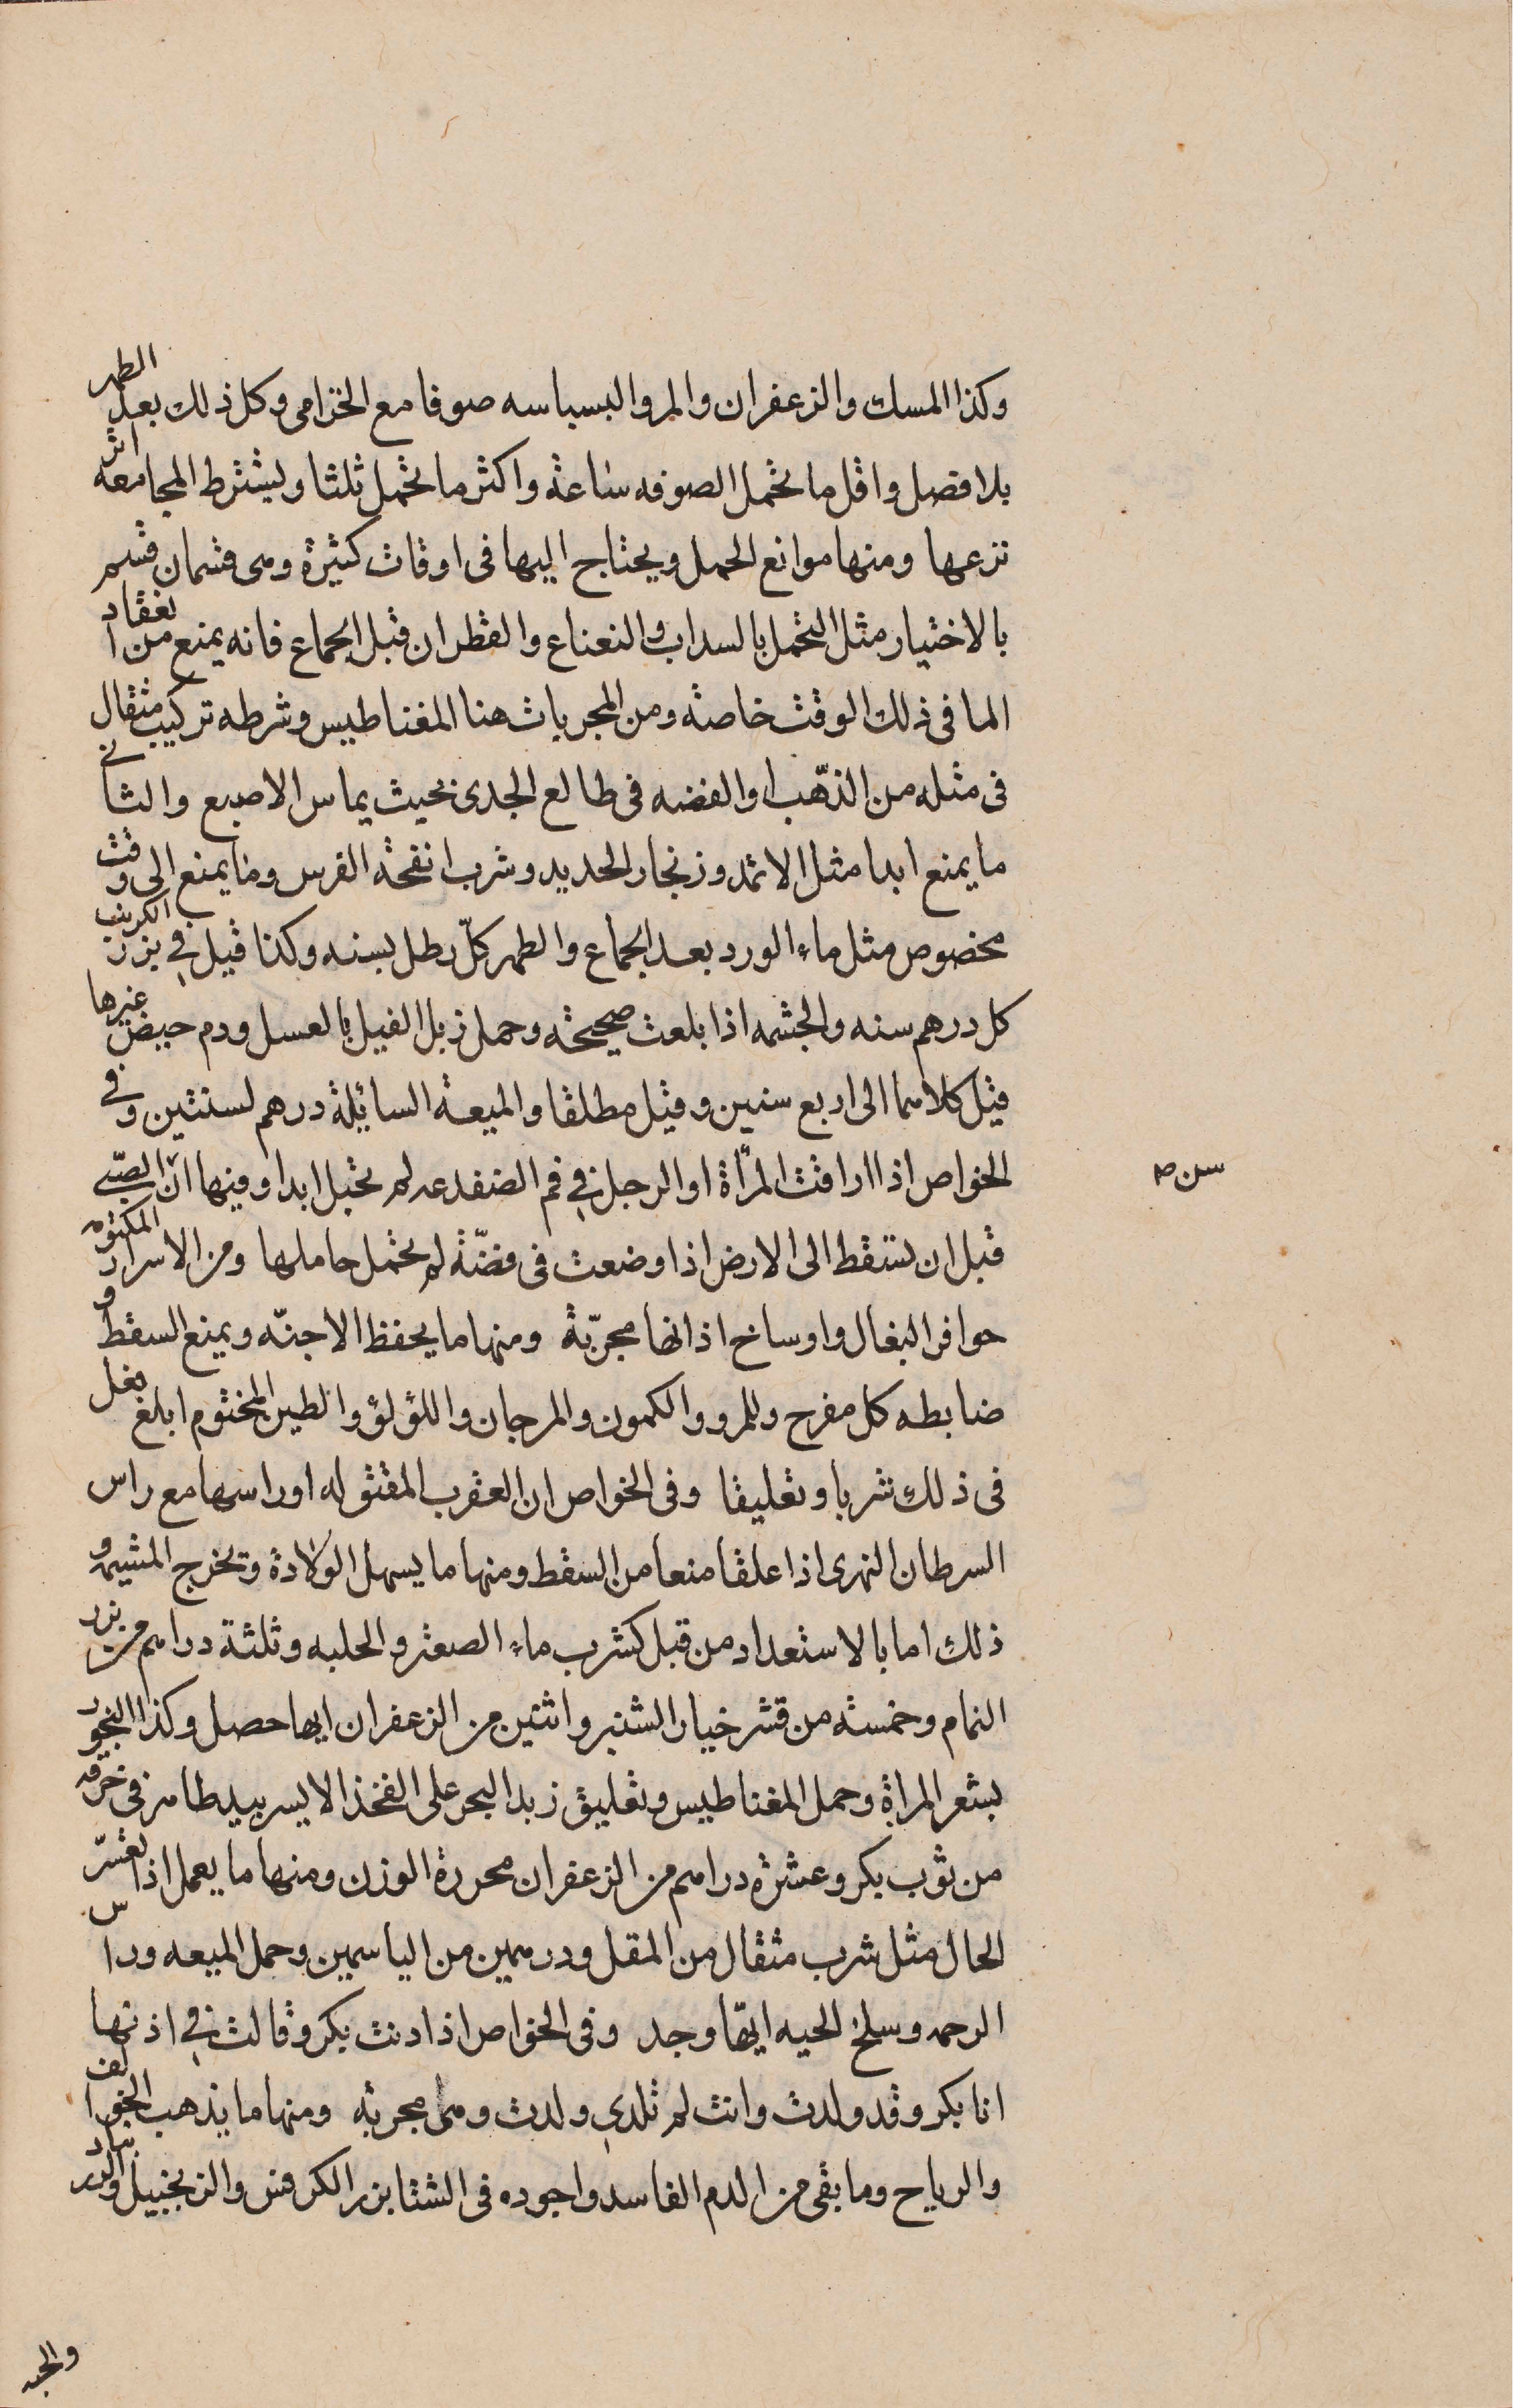 وكذا المسك والزعفران والمر والبسباسه صوفا مع الخزامى وكل ذلك بعد الطهر
بلا فصل واقل ما تحمل الصوفه ساعة واكثر ما تحمل ثلثا ويشترط المجامعه اثر
نزعها ومنها موانع الحمل ويحتاج اليها فى اوقات كثيرة وهى قسمان قسم
بالاختيار مثل التحمل بالسداب والنعناع والقطران قبل الجماع فانه يمنع من انعقاد
الما فى ذلك الوقت خاصة ومن المجربات هنا المغناطيس وشرطه تركيب مثقال
فى مثله من الذهب او الفضه فى طالع الجدى بحيث يماس الاصبع والثانى
ما يمنع ابدا مثل الاثمد وزنجار الحديد وشرب انفحة الفرس وما يمنع الى وقت
مخصوص مثل ماء الورد بعد الجماع والطهر كلّ رطل بسنه وكذا قيل فى بزر الكرنب
كل درهم سنه والجشمه اذا بلعت صحيحة وحمل زبل الفيل بالعسل ودم حيض غيرها
قيل كلاهما الى اربع سنين وقيل مطلقا والميعة السائلة درهم لسنتين وفى
الخواص اذا اراقت المرأة او الرجل فى فم الضفدعه لم تحبل ابدا وفيها انّ سن الصّبى
قبل ان تسقط الى الارض اذا وضعت فى فضّة لم تحمل حاملها ومن الاسرار المكتومه
حوافر البغال واوساخ اذانها مجرّبة ومنها ما يحفظ الاجنّه ويمنع السقط و
ضابطه كل مفرح وللمرو والكمون والمرجان واللؤلؤ والطين المختوم ابلغ فعل
فى ذلك شربا وتعليقا وفى الخواص ان العقرب المقتوله او راسها مع راس
السرطان النهرى اذا علقا منعا من السقط ومنها ما يسهل الولادة ويخرج المشيمه و
ذلك اما بالاستعداد من قبل كشرب ماء الصعتر والحلبه وثلثة دراهم من بزر
النمام وخمسة من قشر خيار الشنبر واثنين من الزعفران ايها حصل وكذا البخور
بشعر المراة وحمل المغناطيس وتعليق زبد البحر على الفخذ الايسر بيد طاهر فى خرقه
من ثوب بكر وعشرة دراهم من الزعفران محررة الوزن ومنها ما يعمل اذا تعسّر
الحال مثل شرب مثقال من المقل ودرهمين من الياسمين وحمل الميعه وراس
الرحمه وسلخ الحيه ايّها وجد وفى الخواص اذا دنت بكر وقالت فى اذنها
انا بكر وقد ولدت وانت لم تلدى ولدت وهى مجربة ومنها ما يذهب الخوالف
والرياح وما بقى من الدم الفاسد واجوده فى الشتا بزر الكرفس والزنجبيل
سن صه
والحبه